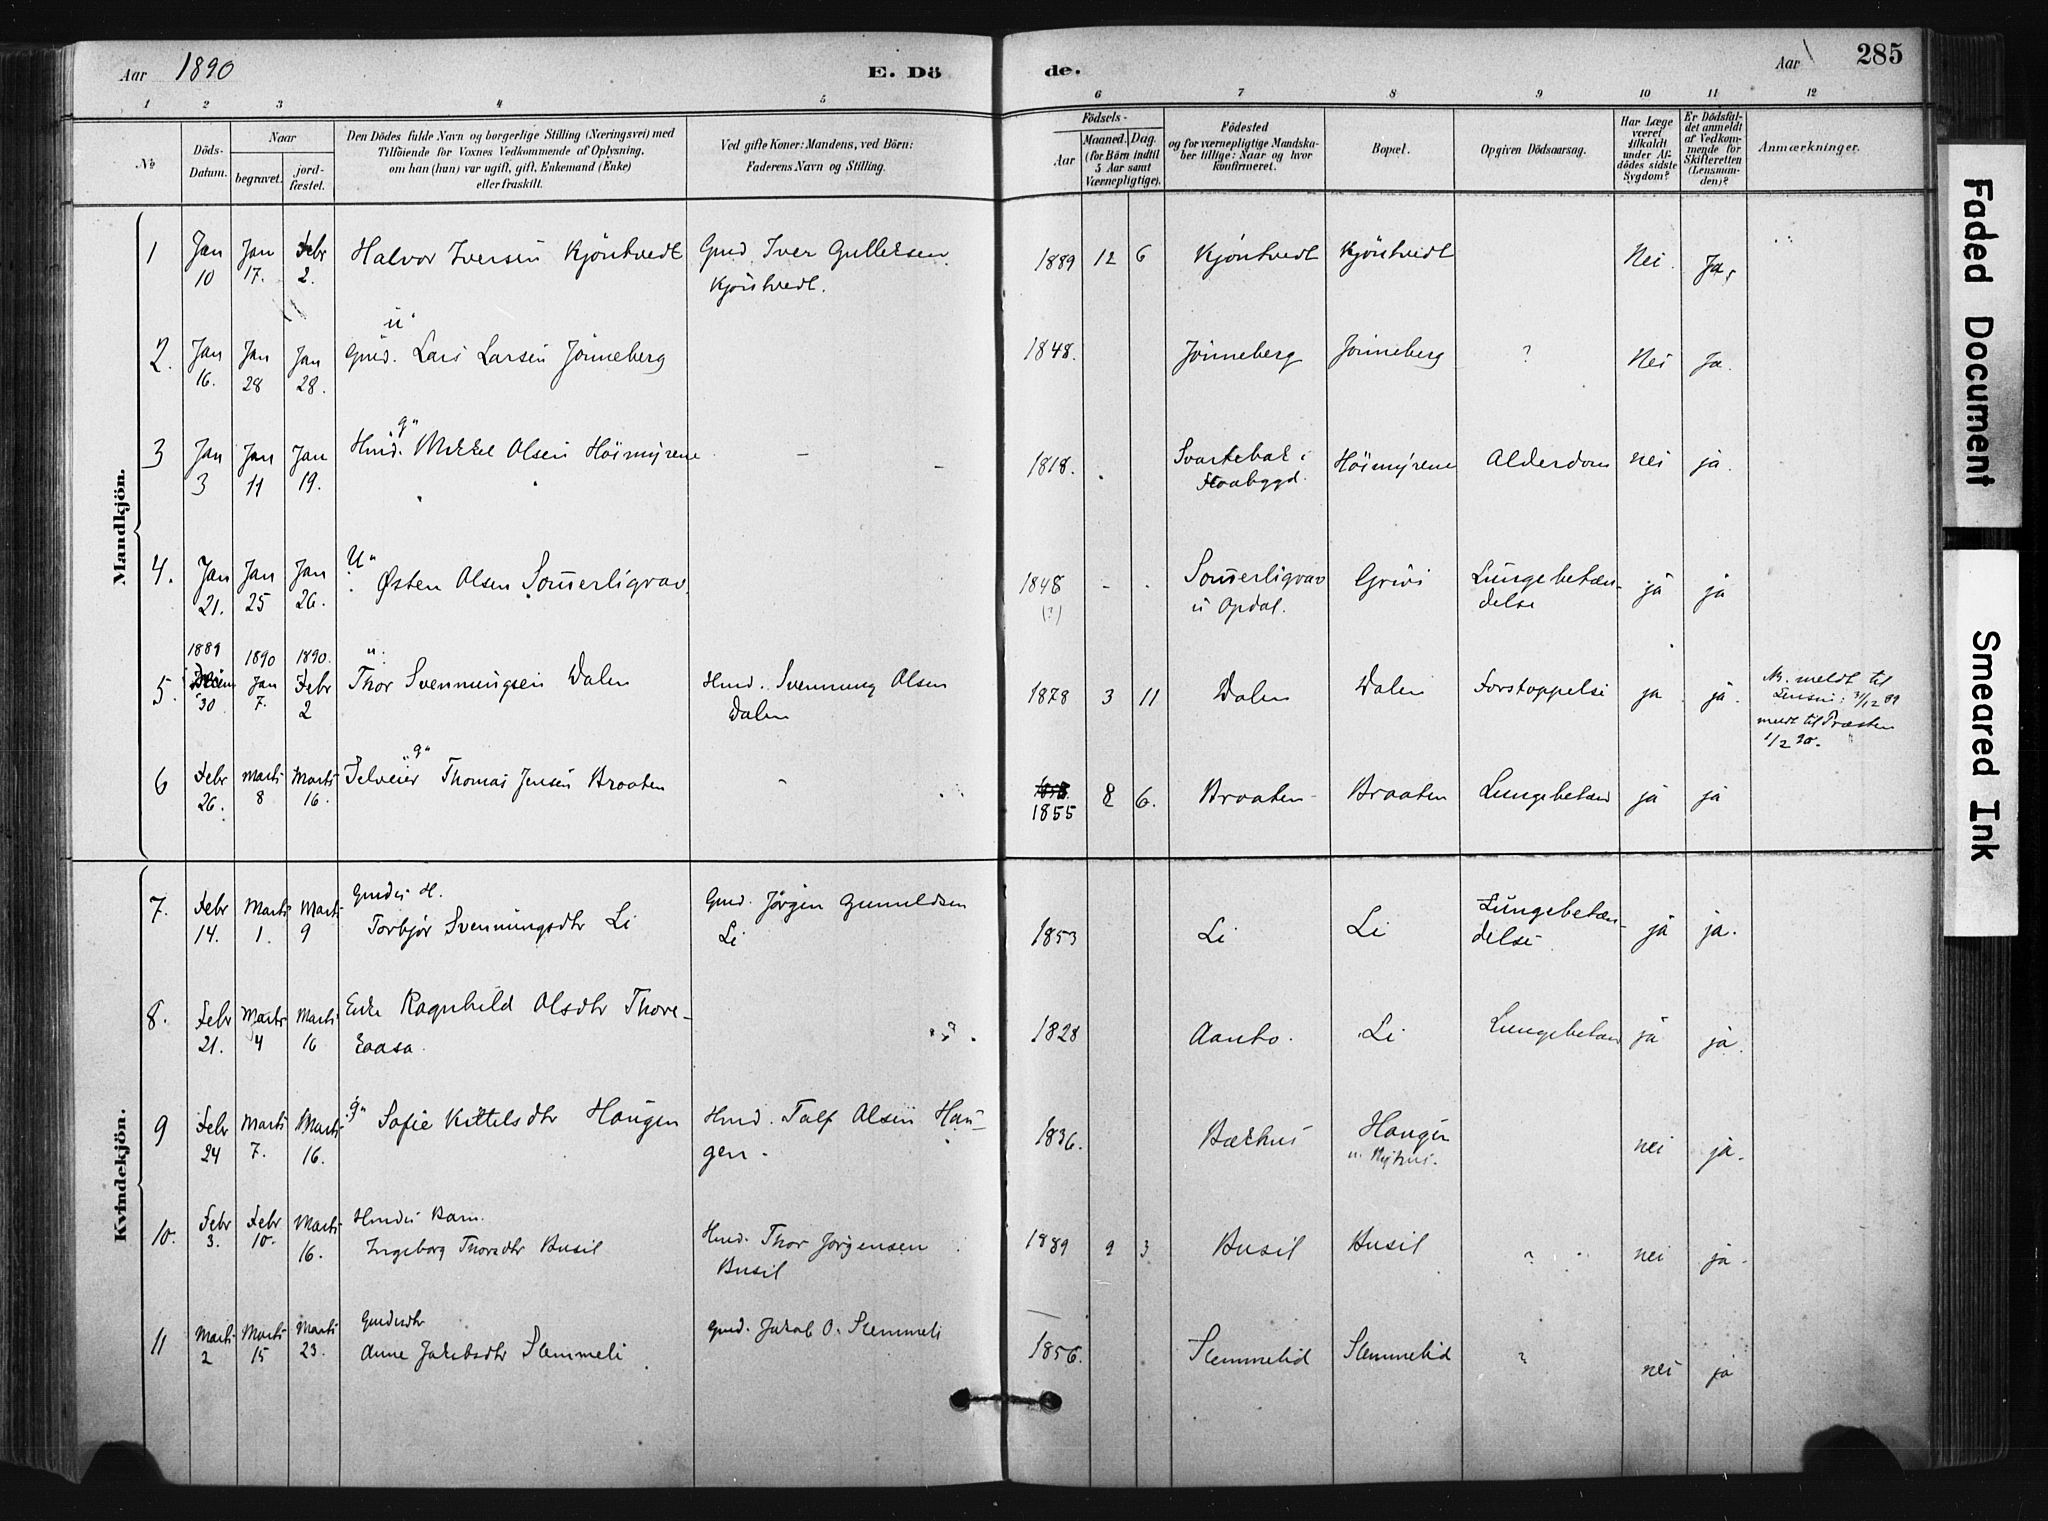 Aar 1890
E. Dö
de.
Aar
285
1 2 3 4 5 6 7 8 9 10 11 12
No
Döds-
Datum.
Naar
begravet.
jord-
fæstet.
Den Dödes fulde Navn og borgerlige Stilling (Næringsvei) med
Tilföiende for Voxnes Vedkommende af Oplysning.
om han (hun) var ugift, gift, Enkemand (Enke)
eller fraskilt.
Ved gifte Koner: Mandens, ved Börn:
Faderens Navn og Stilling.
Födsels-
Aar
Maaned.
Dag.
(for Börn indtil
5 Aar samt
Værnepligtige).
Födested
og for værnepligtige Mandska-
ber tillige: Naar og hvor
konfirmeret.
Bopæl.
Opgiven Dödsaarsag.
Har Læge
været
tilkaldt
under Af-
dödes sidste
Sygdom?
Er Dödsfal-
det anmeldt
af Vedkom-
mende for
Skifteretten
(Lensman-
den)?
Anmærkninger.
Mandkjön.
1 Jan 10 Jan 17. Febr 2. Halvor Iversen Kjöntvedt Gmd. Iver Gulleksen
Kjöntvedt. 1889 12 6 Kjöntvedt Kjöntvedt Nei. Ja,
u"
2. Jan 16. Jan 28 Jan 28. Gmd. Lars Larsen Jönneberg 1848. Jönneberg Jönneberg ? Nei Ja.
"g"
3 Jan 3 Jan 11 Jan 19. Hmd. Mikkel Olsen Höimyrene - - 1818. Svartebak i
Flaabygd. Höimyrene Alderdom nei ja.
U"
4. Jan 21. Jan 25 Jan 26. Østen Olsen Sommerligrav 1848 (?) - - Sommerligrav
u Opdal. Grivi Lungebetæn-
delse ja ja
u.
5. 1889 30 1890 Jan 7. 1890. Febr 2 Thor Svenningsen Dalen Hmd. Svenning Olsen
Dalen 1878 3 11 Dalen Dalen Forstoppelse ja ja. No. meldt til
Lensm: 31/12 89
meldt til Præsten
1/2 90.
"g"
6 Febr 26. Marts 8 Marts 16. Selveier Thomas Jensen Braaten - 1855 8 6. Braaten Braaten Lungebetænd ja ja
Kvindekjön.
7. Febr 14. Marts 1. Marts 9 Gmdes H.
Torbjör Svenningsdtr Li Gmd. Jörgen Gunuldsen
Li 1853 Li Li Lungebetæn-
delse ja ja.
8. Febr 21. Marts 4 Marts 16 Enke Ragnhild Olsdtr Thore-
Eaasa. 1828 Aanto. Li Lungebetæn ja ja.
9 Febr 24 Marts 7. Marts 16. "g" Sofie Kittelsdtr Haugen Hmd. Talf Olsen Hau-
gen. 1836. Bækhus Haugen
u. Nyhus. nei ja.
10. Febr 3. Febr 10. Marts 16. Hmdes Barn.
Ingeborg Thorsdtr Busil Hmd. Thor Jörgensen
Busil 1889 9 3 Busil Busil ? nei ja.
11 Marts 2 Marts 15 Marts 23. Gmdsdtr
Anne Jakobsdtr Slemmeli Gmd. Jakob O. Slemmeli 1856. Slemmelid Slemmelid ? nei ja
Faded Document
Smeared Ink